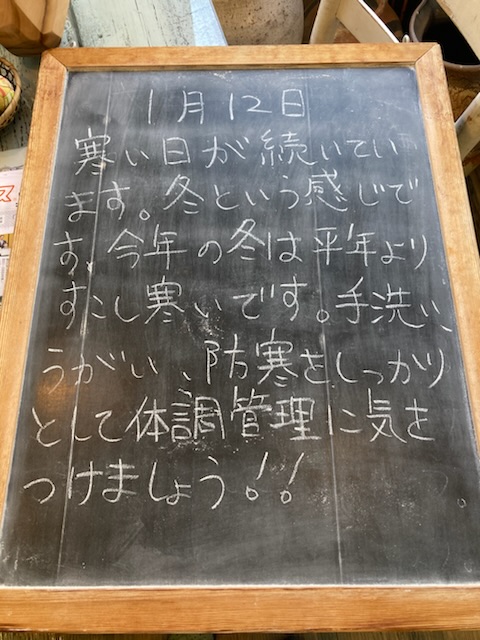 1月12日
寒い日が続いてい
ます。冬という感じで
す。今年の冬は平年より
すこし寒いです。手洗い、
うがい、防寒をしっかり
として体調管理に気を
つけましょう!!
ス